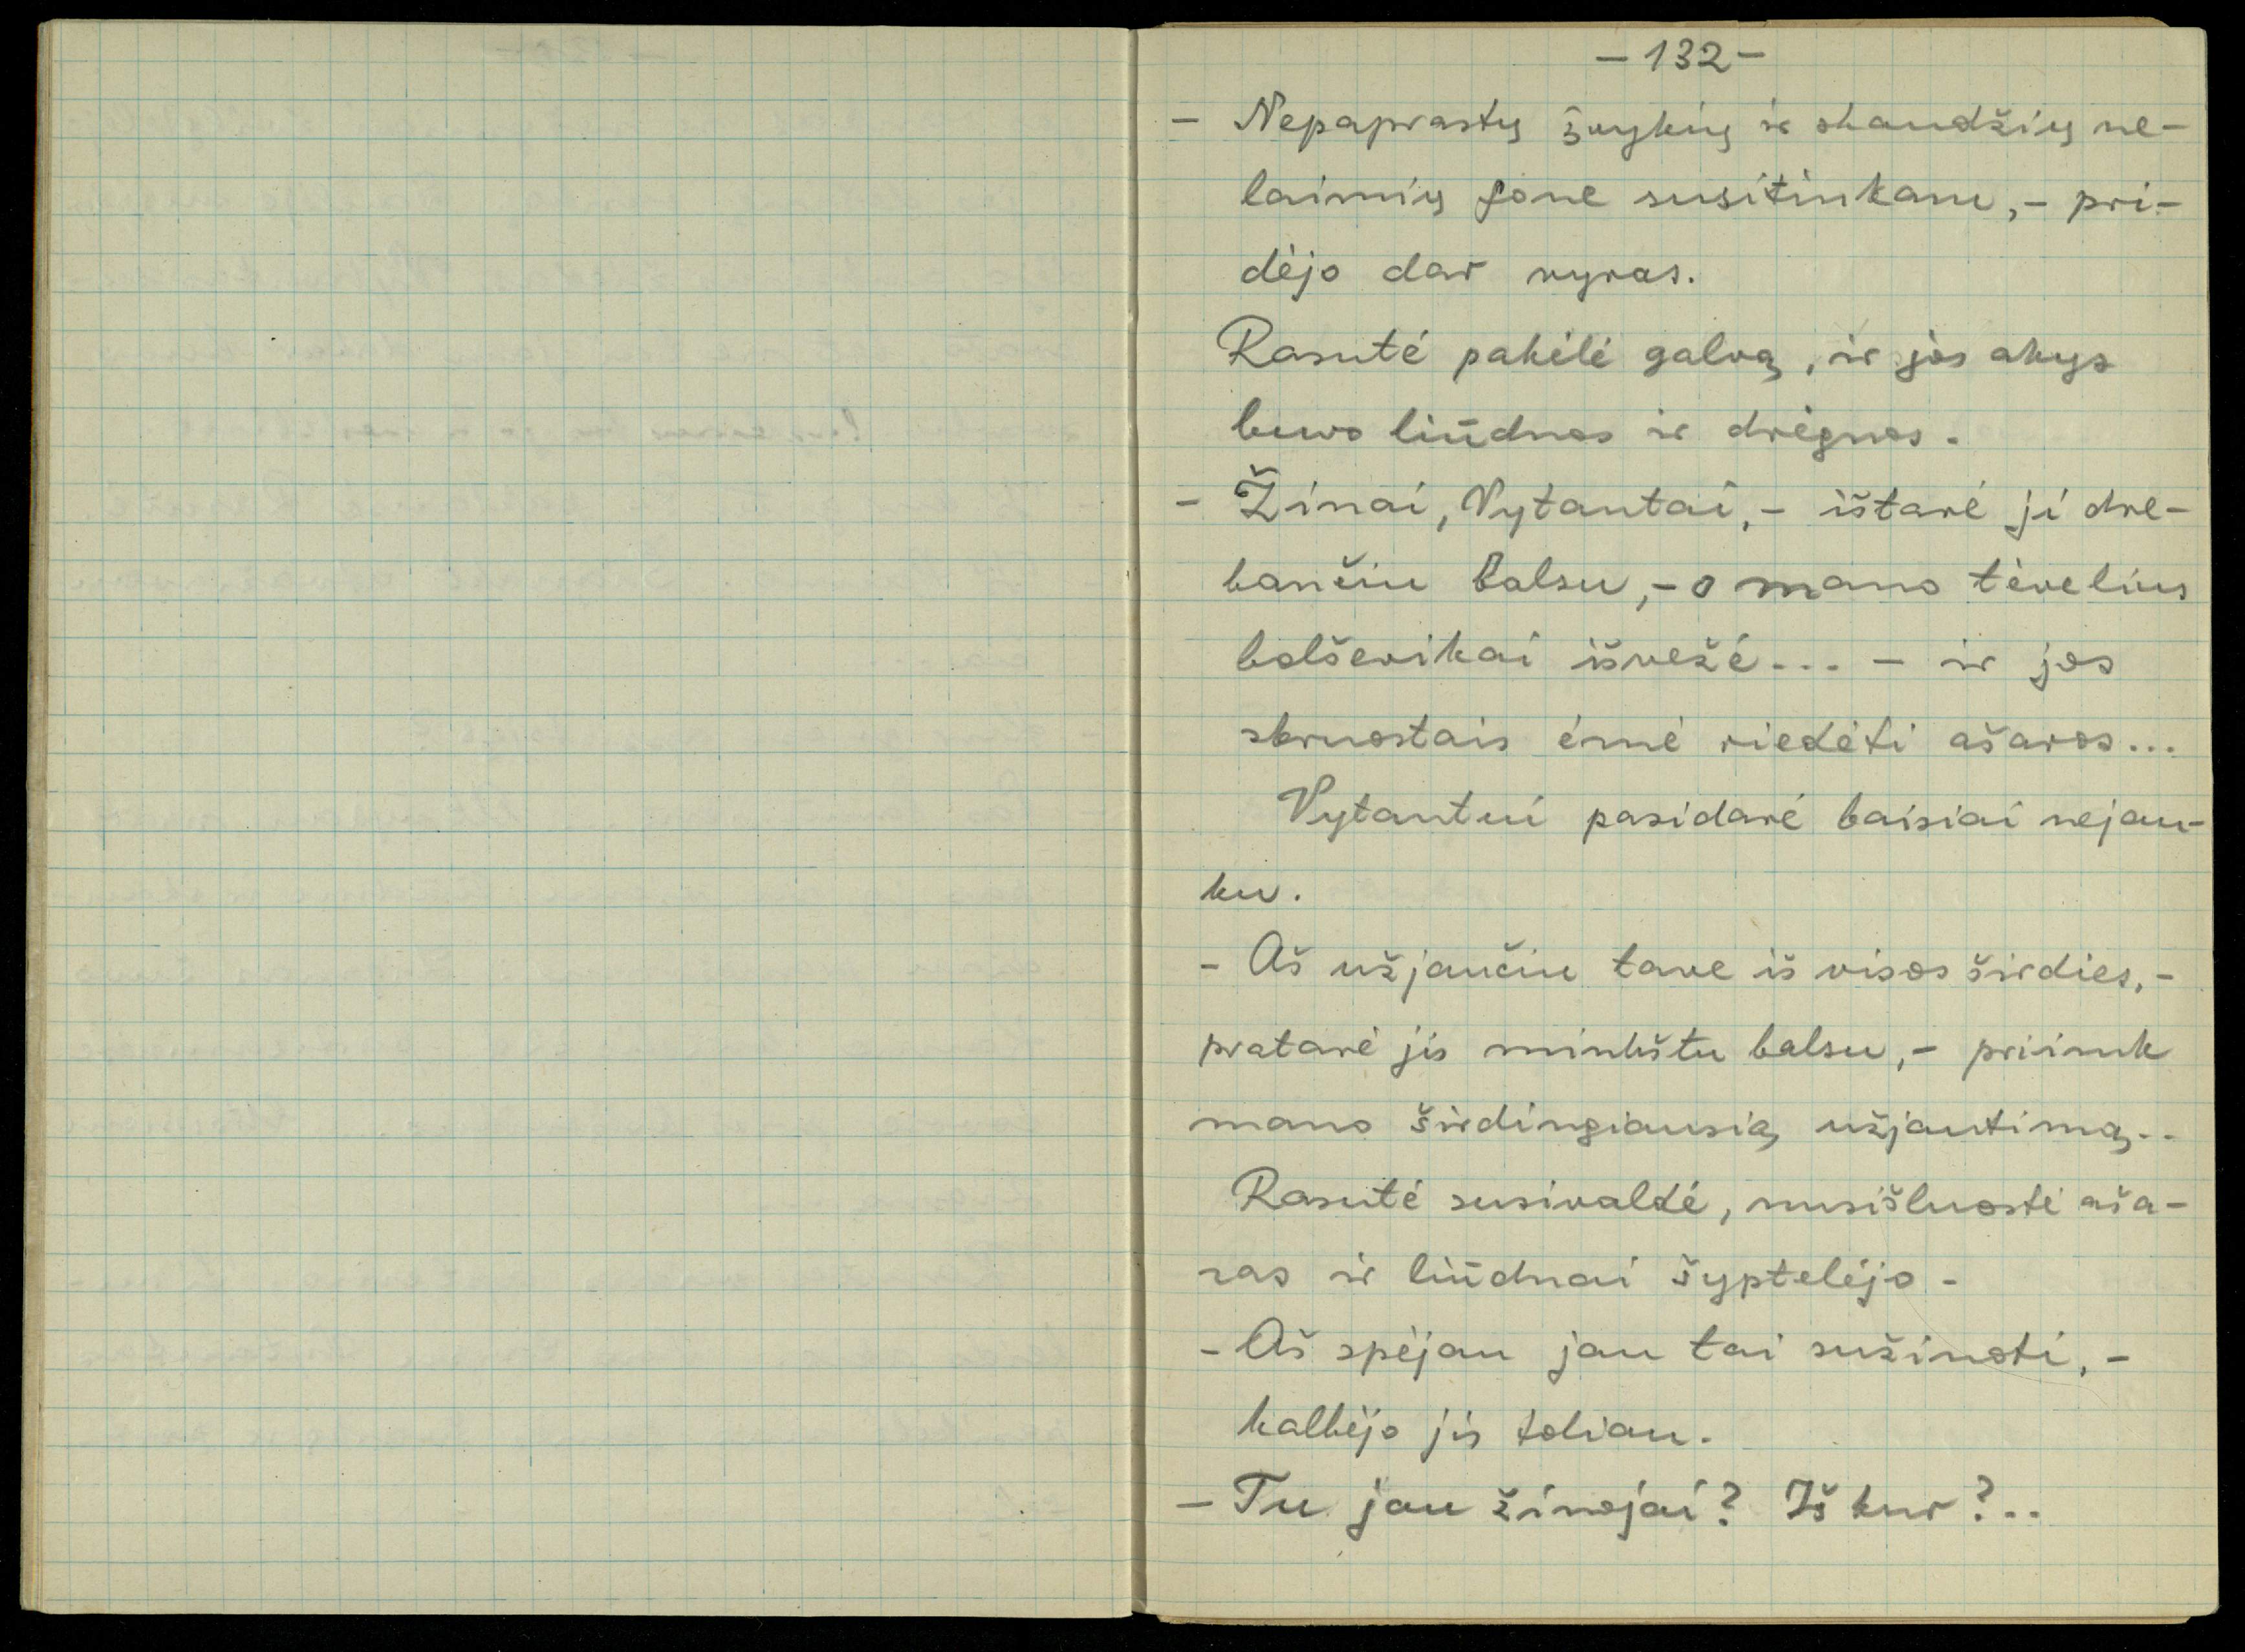 - 132 -
- Nepaprastų įvykių ir skaudžių ne-
laimių fone susitinkam, - pri-
dėjo dar vyras.
Rasutė pakėlė galvą, ir jos akys
buvo liūdnos ir drėgnos.
- Žinai, Vytautai, - ištarė ji dre-
bančiu balsu, - o mano tėvelius
bolševikai išvežė... - ir jos
skruostais ėmė riedėti ašaros...
Vytautui pasidarė baisiai nejau-
ku.
- Aš užjaučiu tave iš visos širdies, -
pratarė jis minkštu balsu, - priimk
mano širdingiausią užjautimą..
Rasutė susivaldė, nusišluostė aša-
ras ir liūdnai šyptelėjo -
- Aš spėjau jau tai sužinoti, -
kalbėjo jis toliau.
- Tu jau žinojai? Iš kur?..